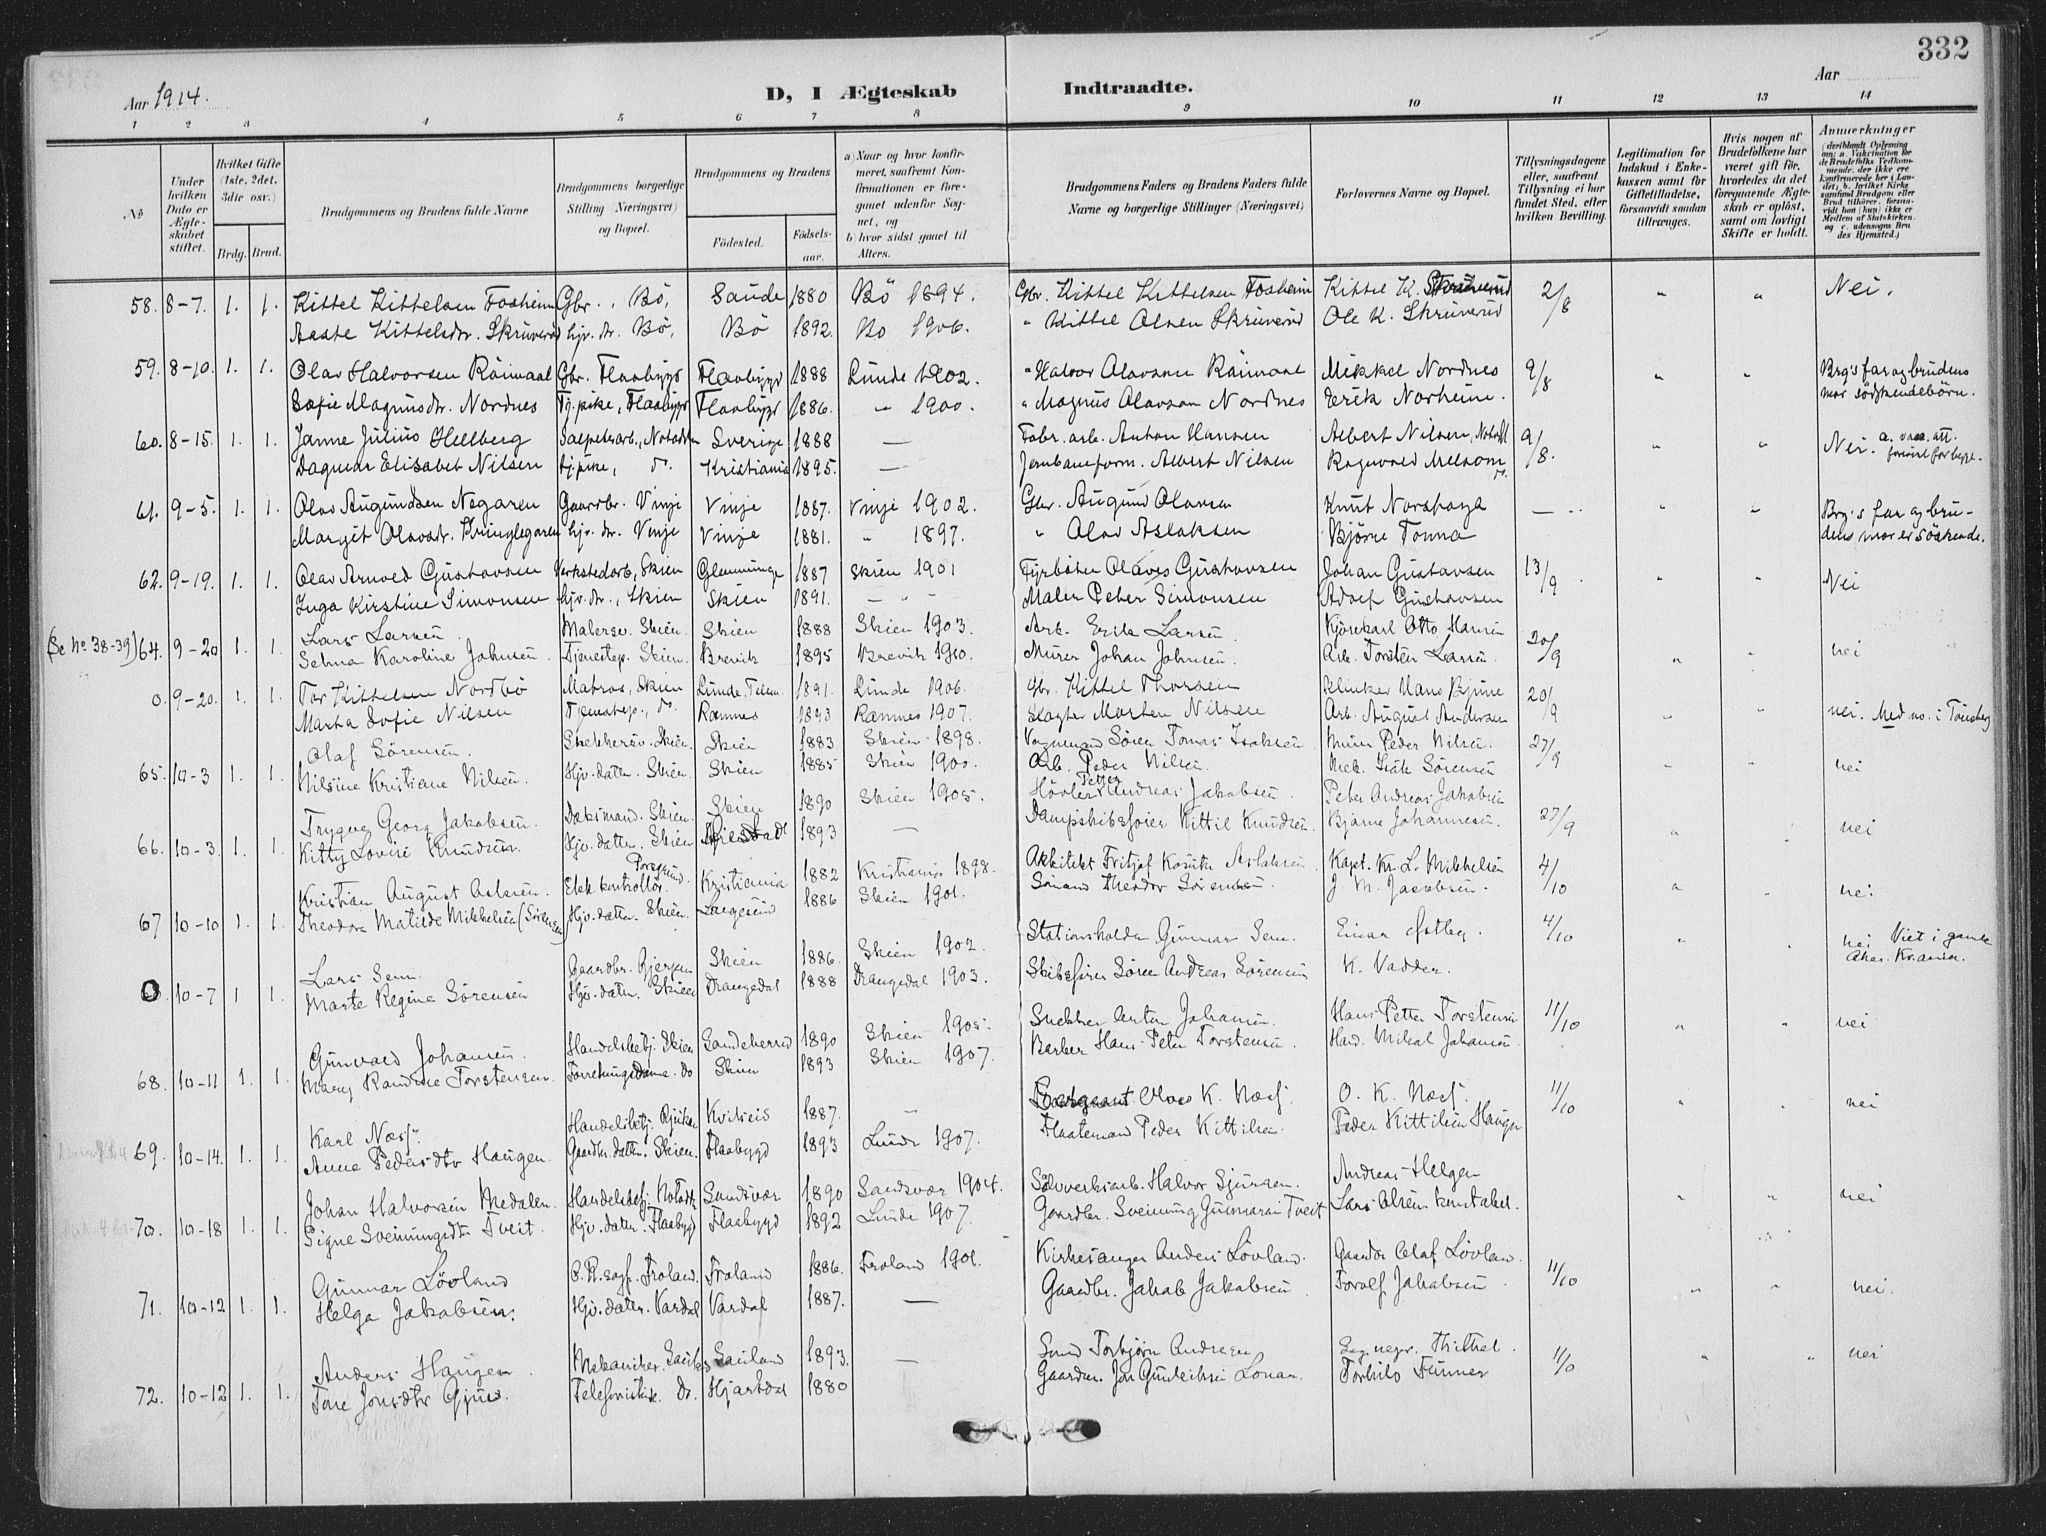 332
Aar 1914.
D, I Ægteskab Indtraadte.
Aar
1 2 3 4 5 6 7 8 9 10 11 12 13 14
No
Under hvilken Dato er Ægteskabet stiftet.
Hvilket Gifte (1ste, 2det, 3die osv.)
Brdg. Brud.
Brudgommens og Brudens fulde Navne
Brudgommens borgerlige Stilling (Næringsvei) og Bopæl.
Brudgommens og Brudens
Fødested. Fødselsaar.
a) Naar og hvor konfirmeret, saafremt Konfirmationen er foregaaet udenfor Sognet, og
b) hvor sidst gaaet til Alters.
Brudgommens Faders og Brudens Faders fulde Navne og borgerlige Stillinger (Næringsvei)
Forlovernes Navne og Bopæl.
Tillysningsdagene eller, saafremt Tillysning ei har fundet Sted, efter hvilken Bevilling.
Legitimation for Indskud i Enkekassen samt for Giftetilladelse, forsaavidt saadan tiltrænges.
Hvis nogen af Brudefolkene har været gift før, hvorledes da det foregaaende Ægteskab er opløst, samt om lovligt Skifte er holdt.
Anmerkninger (deriblandt Oplysning om: a. Vakcination for de Brudefolks Vedkommende, der ikke ere konfirmerede her i Landet; b. hvilket Kirkesamfund Brudgom eller Brud tilhører, forsaavidt han (hun) ikke er Medlem af Statskirken, og c. udensogns Brudes Hjemsted.)
58. 8-7. 1. 1. Kittel Kittelsen Fosheim Gbr., Bö, Saude 1880 Bö 1894. Gbr. Kittel Kittelsen Fosheim Kittel K. 2/8 " " Nei.
Aaste Kittelsdr. Skruverud hjv. dr. Bö, Bö 1892. Bo 1906. " Kittel Olsen Skruverud Ole K. Skruverud
59. 8-10. 1. 1. Olav Halvorsen Röimaal Gbr. Flaabygd Flaabygd 1888 Lunde 1902. " Halvor Olavsen Röimaal Mikkel Nordnes 9/8 " " Brg's far og brudens
Sofie Magnusdr. Nordnes Tj.pike, Flaabygd Flaabygd 1886. " 1900. " Magnus Olavson Nordnes Erik Norheim. mor södskendebörn.
60. 8-15. 1. 1. Janne Julius Hellberg Salpeterarb., Notodden Sverige 1888 — Fabr. arb. Anton Hansen Albert Nilsen, Notodd 9/8. " " Nei. a. vacc. att. forevist for begge.
Dagmar Elisabet Nilsen tj.pike, do. Kristiania 1895. — Jernbaneform. Albert Nilsen Ragnvald Melsom do.
61. 9-5. 1. 1. Olav Augundsen Negaren Gaardbr. Vinje Vinje 1887. Vinje 1902. Gbr. Augund Olavsen Knut Norshaga — " " Brg's far og bru-
Margit Olavsdr. Kringlegaren hjv. dr. Vinje Vinje 1881. " 1897. " Olav Aslaksen Björne Tonna dens mor er söskende.
62. 9-19. 1. 1. Olav Arnold Gustavsen Verkstedarb., Skien Glemminge 1887 Skien 1901 Fyrböter Olaves Gustavsen Johan Gustavsen 13/9 " " Nei
Inga Kirstine Simonsen hjv. dr., Skien Skien 1891. — " Maler Peter Simonsen Adolf Gustavsen
(Se No 38-39) 64. 9-20 1. 1. Lars Larsen. Malersv. Skien. Skien 1888 Skien 1903. Arb. Erik Larsen. Kjörekarl Otto Hansen 20/9 " " nei
Selma Karoline Johnsen. Tjenestep. Skien. Brevik 1895 Brevik 1910. Murer Johan Johnsen. Arb. Torsten Larsen.
0. 9-20. 1. 1. Tor Kittelsen Nordbö Matros, Skien Lunde, Telem. 1891. Lunde 1906. Gbr. Kittel Thorsen Klinker Hans Bjune 20/9 " " nei. Med no. i Tönsberg
Marta Sofie Nilsen Tjenestep., do. Ramnes 1893 Ramnes 1907. Slagter Morten Nilsen Arb. August Andersen
65. 10-3 1. 1. Olaf Sörensen. Snekkersv. Skien. Skien 1883 Skien 1898. Vognmand Sören Tomas Isaksen Murer Peder Nilsen. 27/9 " " nei
Nilsine Kristiane Nilsen. Hjv. datter. Skien. Skien 1885 Skien 1900. Arb. Peder Nilsen. Mek. Isak Sörensen
66. 10-3. 1. 1. Trygve Georg Jakobsen. Dæksmand. Skien. Skien 1890 Skien 1905. Hövler Petter Andreas Jakobsen. Peter Andreas Jakobsen 27/9 " " nei
Kitty Lovise Knudsen. Hjv. datter. Skien 1893 — Dampskibsfører Kittil Knudsen. Bjarne Johannesen.
67 10-10 1. 1. Kristian August Aslaksen. Elek. kontrollör Porsgrund. Kristiania 1882 Kristiania 1898. Arkitekt Fritjof Aslaksen Kapt. Kr. L. Mikkelsen 4/10 " " nei
Theodora Matilde Mikkelsen (Sörensen) Hjv. datter. Skien. Langesund 1886 Skien 1901. Sömand Theodor Sörensen. J. M. Jacobsen.
0. 10-7 1 1. Lars Sem. Gaardbr. Gjerpen Skien 1886. Skien 1902. Stationsholder Gunnar Sem. Einar Østby. 4/10 " " nei Viet i gamle Aker. Kr.ania.
Marte Regine Sörensen Hjv. datter. Skien Drangedal 1888 Drangedal 1903. Skibsfører Sören Andreas Sörensen K. Vadder.
68. 10-11 1. 1. Gunvald Johansen. Handelsbetj. Skien Sandeherred 1890 Skien 1905. Snekker Anton Johansen. Hans Petter Torstensen 11/10 " " nei
Mary Randine Torstensen. Forretningsdame. do Skien 1893 Skien 1907. Barber Hans Peter Torstensen. Hard. Mikal Johansen.
69. 10-14. 1. 1. Karl Næss. Handelsbetj. Rjukan Kviteseid 1887. " Sergeant Olav K. Næss. O. K. Næss. 11/10 " " nei
Anne Pedersdtr Haugen. Gaardbr. datter. Skien. Flaabygd 1893 Lunde 1907. Flaateman Peder Kittilsen. Peder Kittilsen Haugen
70. 10-18 1. 1. Johan Halvorsen Medalen. Handelsbetj. Notodd. Sandsvær 1890 Sandsvær 1904. Sölvverksarb. Halvor Sjursen. Andreas Helgen " " nei
Signe Sveinungsdtr Tveit. Hjv. dater. Flaabygd Flaabygd 1892 Lunde 1907. Gaardbr. Sveinung Gunnarsen Tveit Lars Olsen konstabel.
71. 10-12 1. 1. Gunnar Lövland O.R.sagf. Froland. Froland 1886. Froland 1901. Kirkesanger Anders Lövland. Gaardbr Olaf Lövland. 11/10 " " nei.
Helga Jakobsen. Hjv. dater. Vardal Vardal 1887. — Gaardbr. Jakob Jakobsen Torolf Jakobsen.
72. 10-12 1. 1. Anders Haugen. Mekaniker. Sauland Sauland 1893. — Smed Torbjörn Andresen Sagmegr. Thithel. 11/10 " " nei
Tone Jonsdtr Gjue. Telefonistin. do. Hjartdal 1880 Gaardbr. Jon Gunleiksen Lonar. Torhild Funner